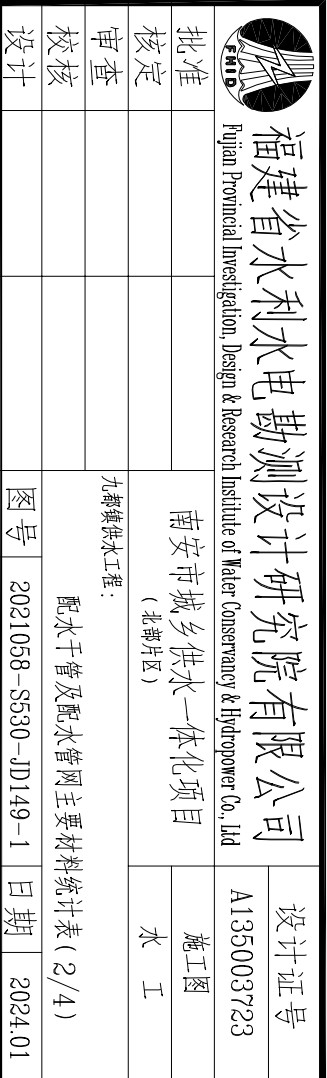 FHID
福建省水利水电勘测设计研究院有限公司
Fujian Provincial Investigation, Design & Research Institute of Water Conservancy & Hydropower Co., Ltd
设计证号
A135003723
批准
核定
审查
校核
设计
南安市城乡供水一体化项目
(北部片区)
施工图
水 工
九都镇供水工程:
配水干管及配水管网主要材料统计表(2/4)
图号
2021058-S530-JD149-1
日期
2024.01